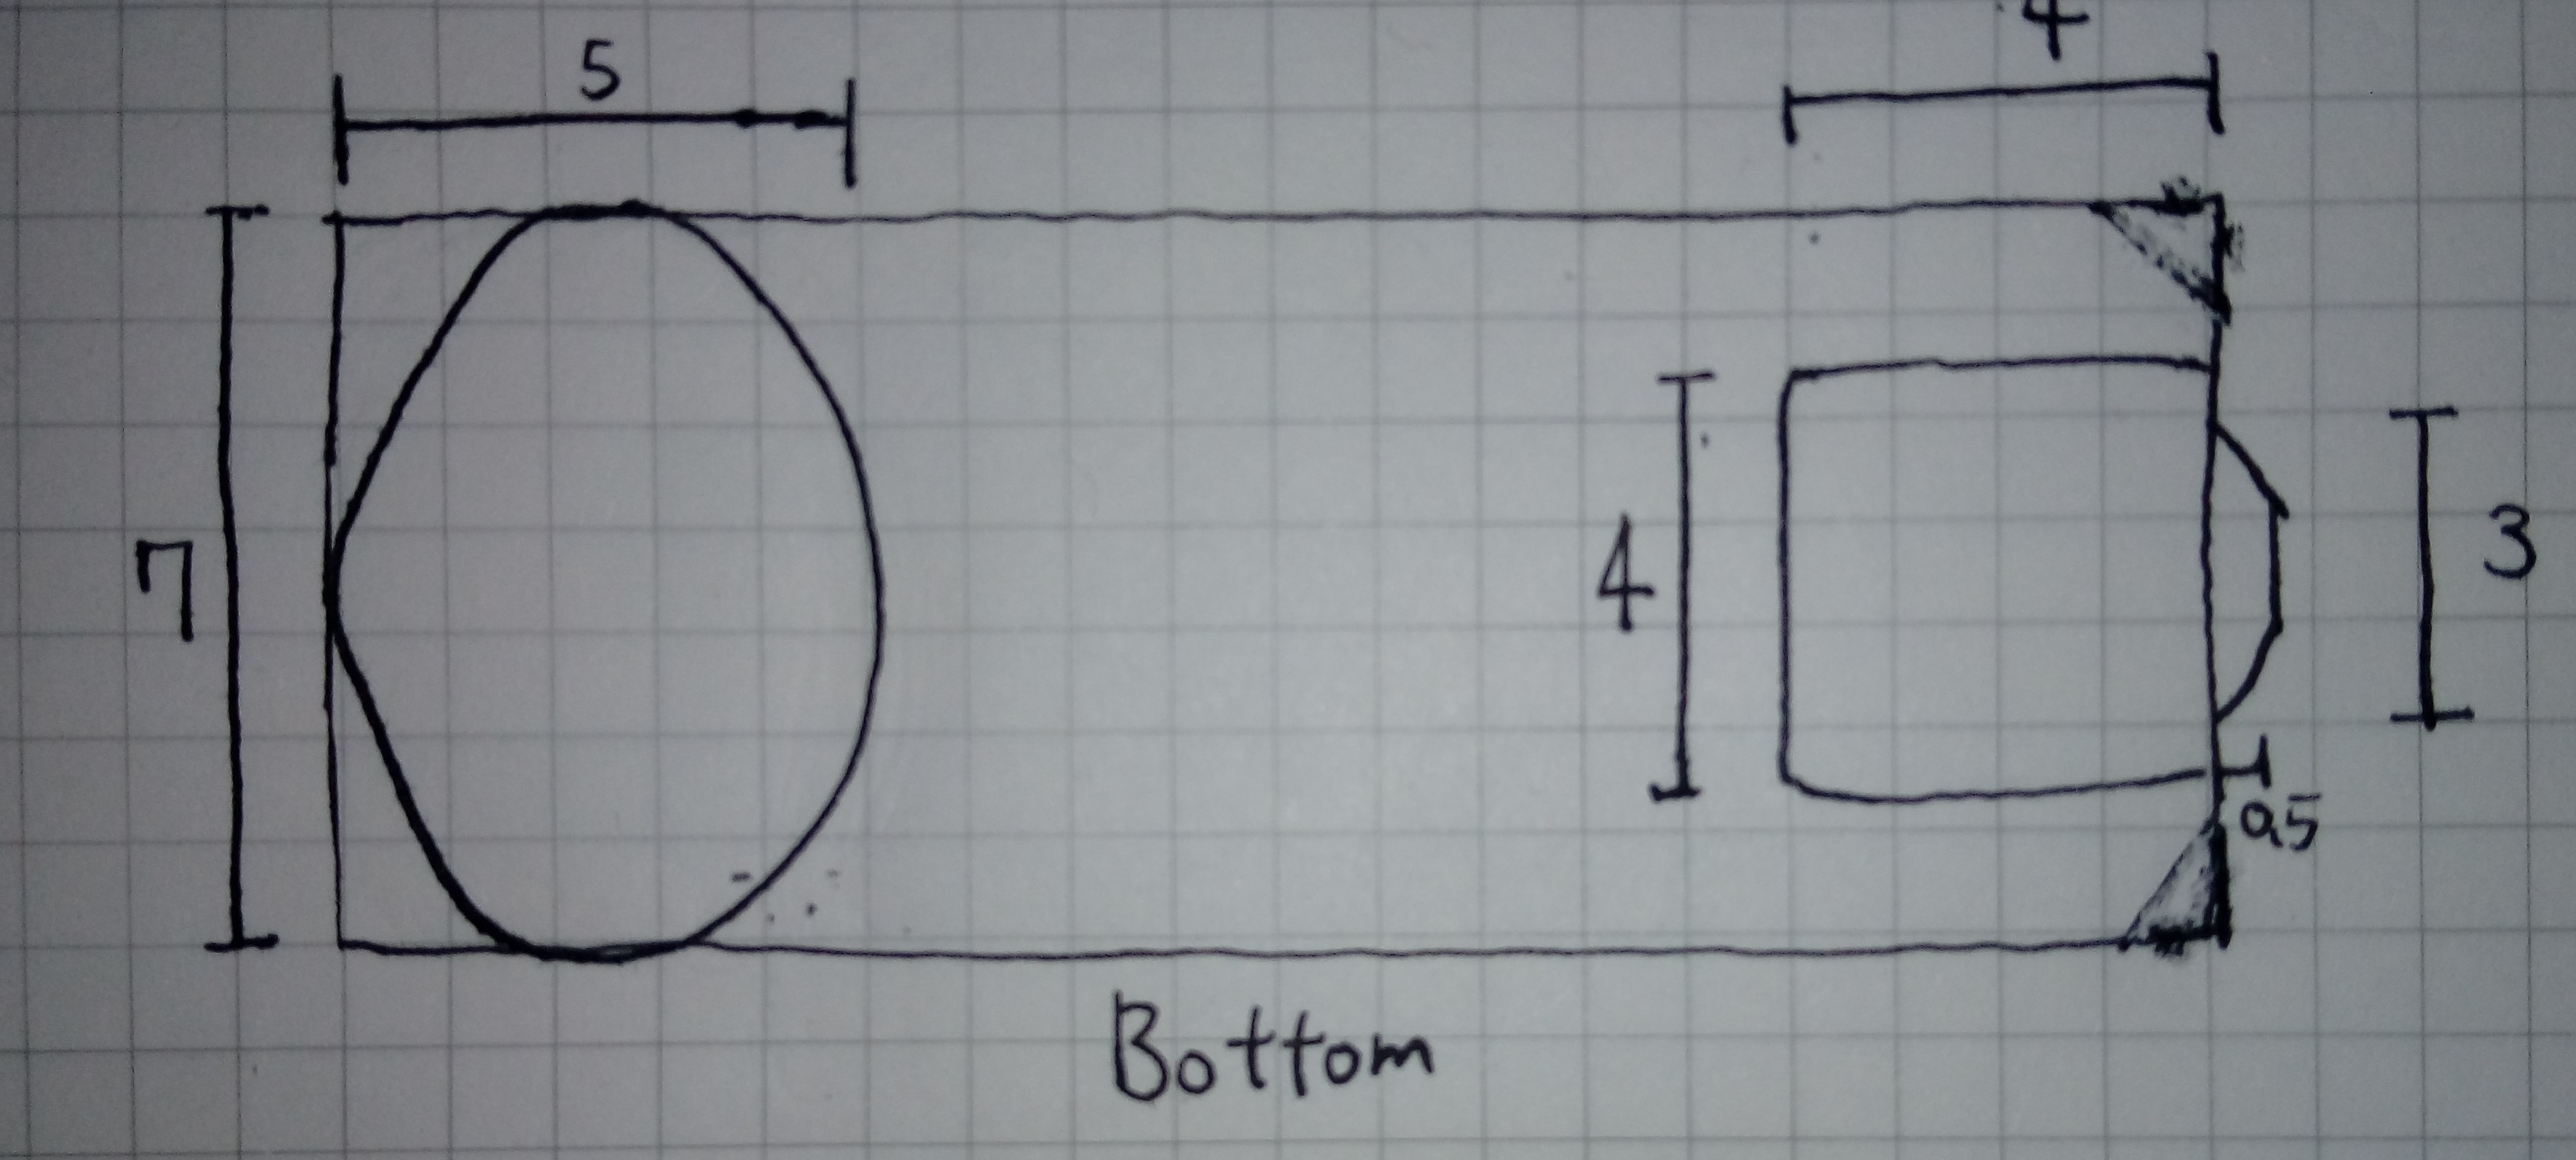 5
4
7
4
3
0.5
Bottom